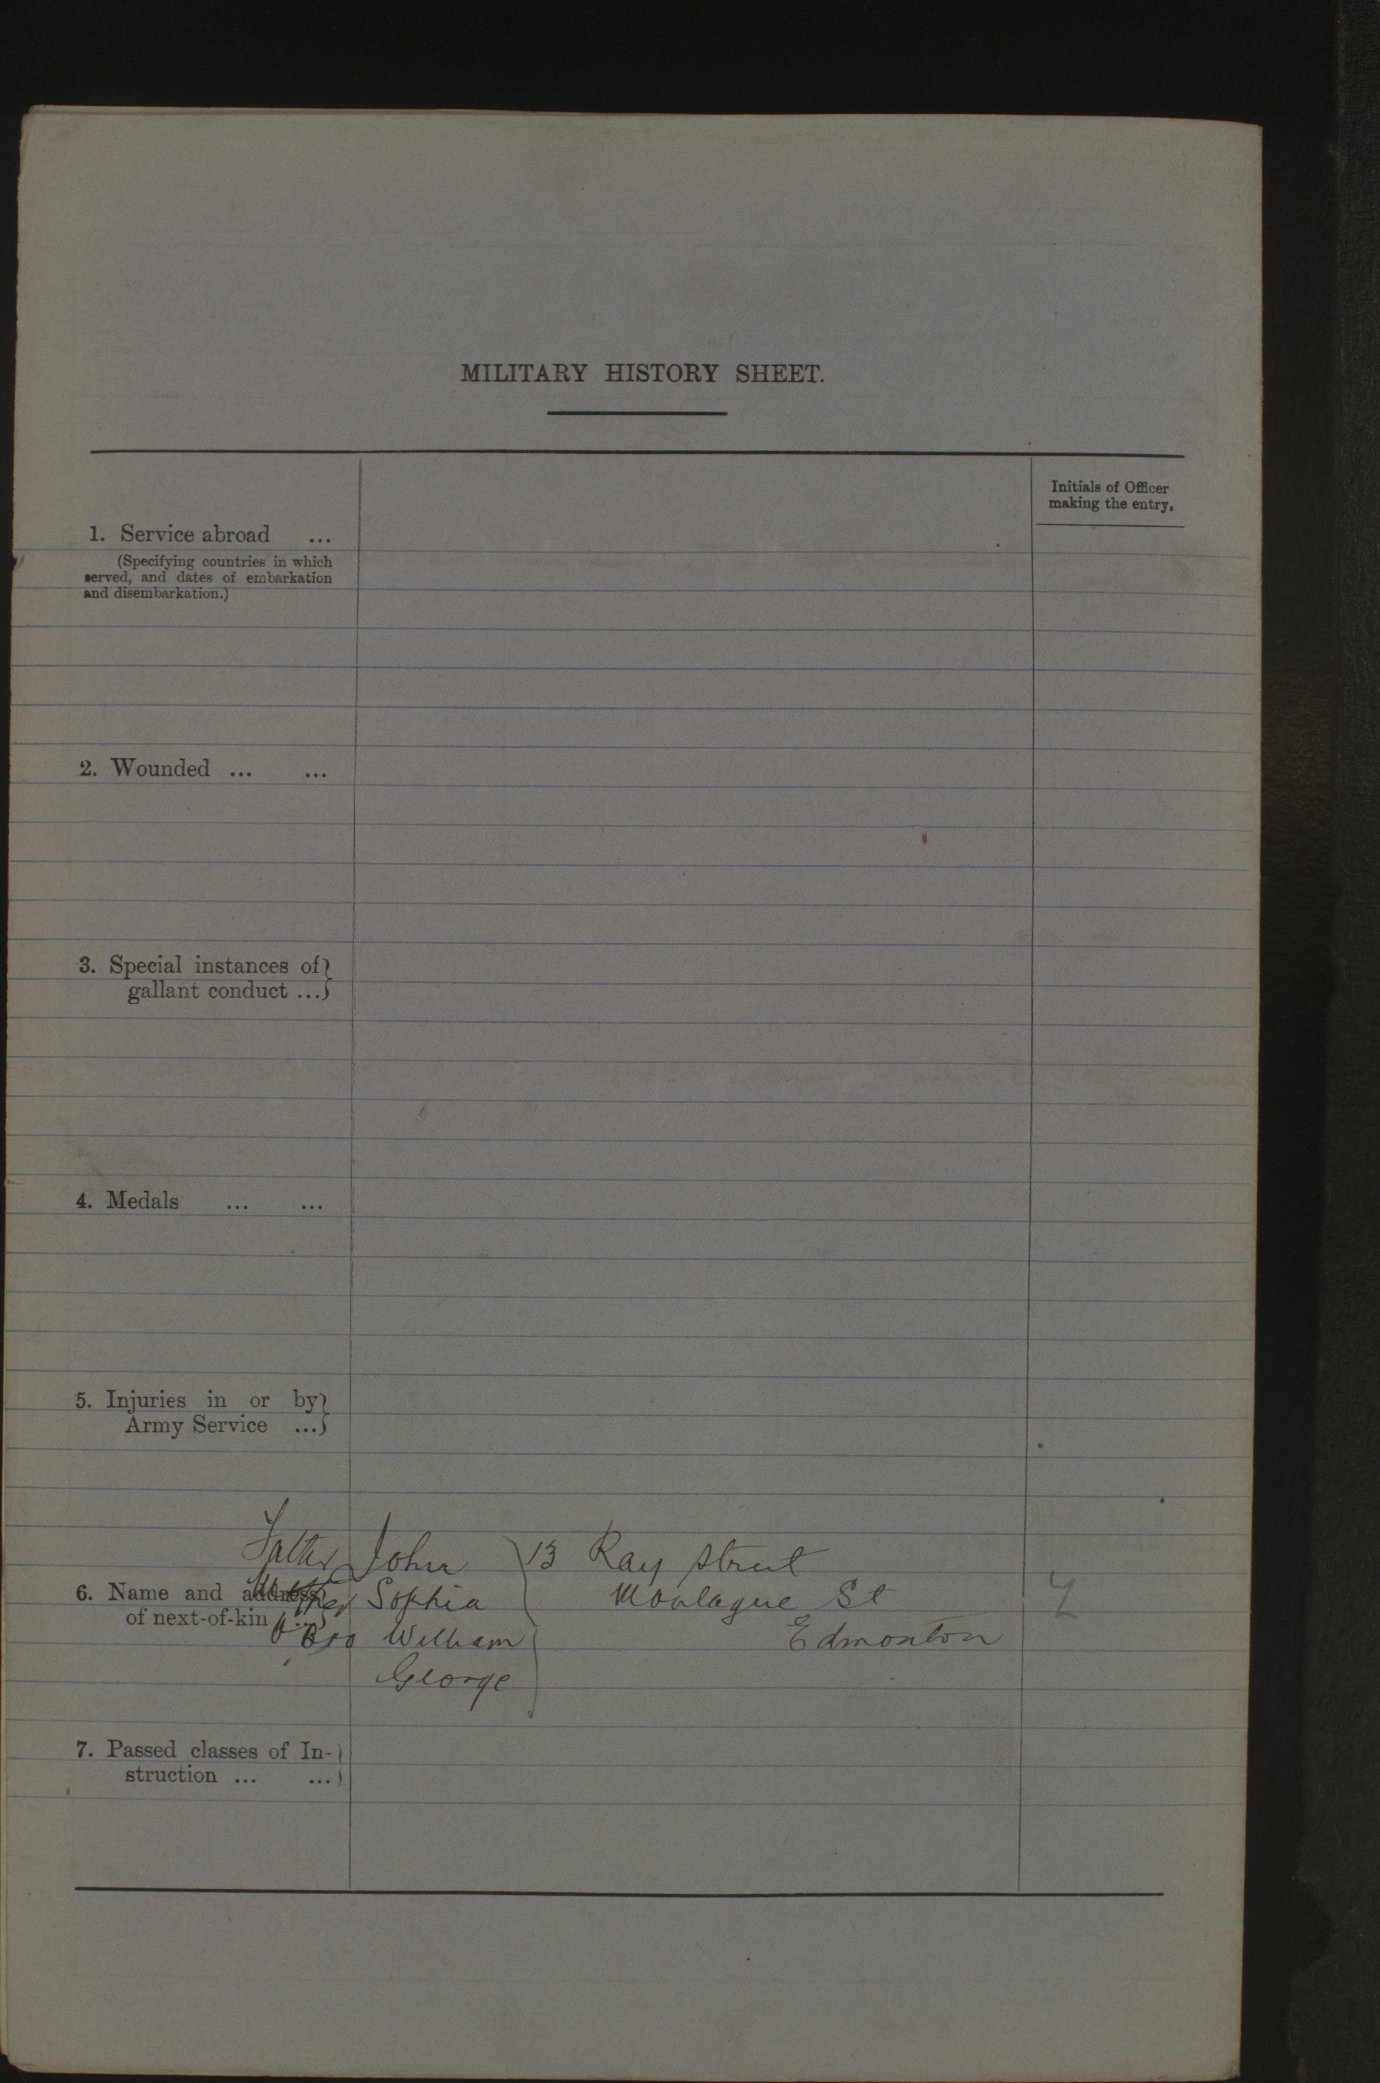 MILITARY HISTORY SHEET.
Initials of Officer
making the entry.
1. Service abroad ...
(Specifying countries in which
served, and dates of embarkation
and disembarkation.)
2. Wounded ... ...
3. Special instances of}
gallant conduct ...}
4. Medals ... ...
5. Injuries in or by}
Army Service ...}
Father John } 13 Ray street
6. Name and address}
Mother Sophia Montague St
of next-of-kin ...}
Bro William Edmonton
George
7. Passed classes of In-}
struction ... ...}